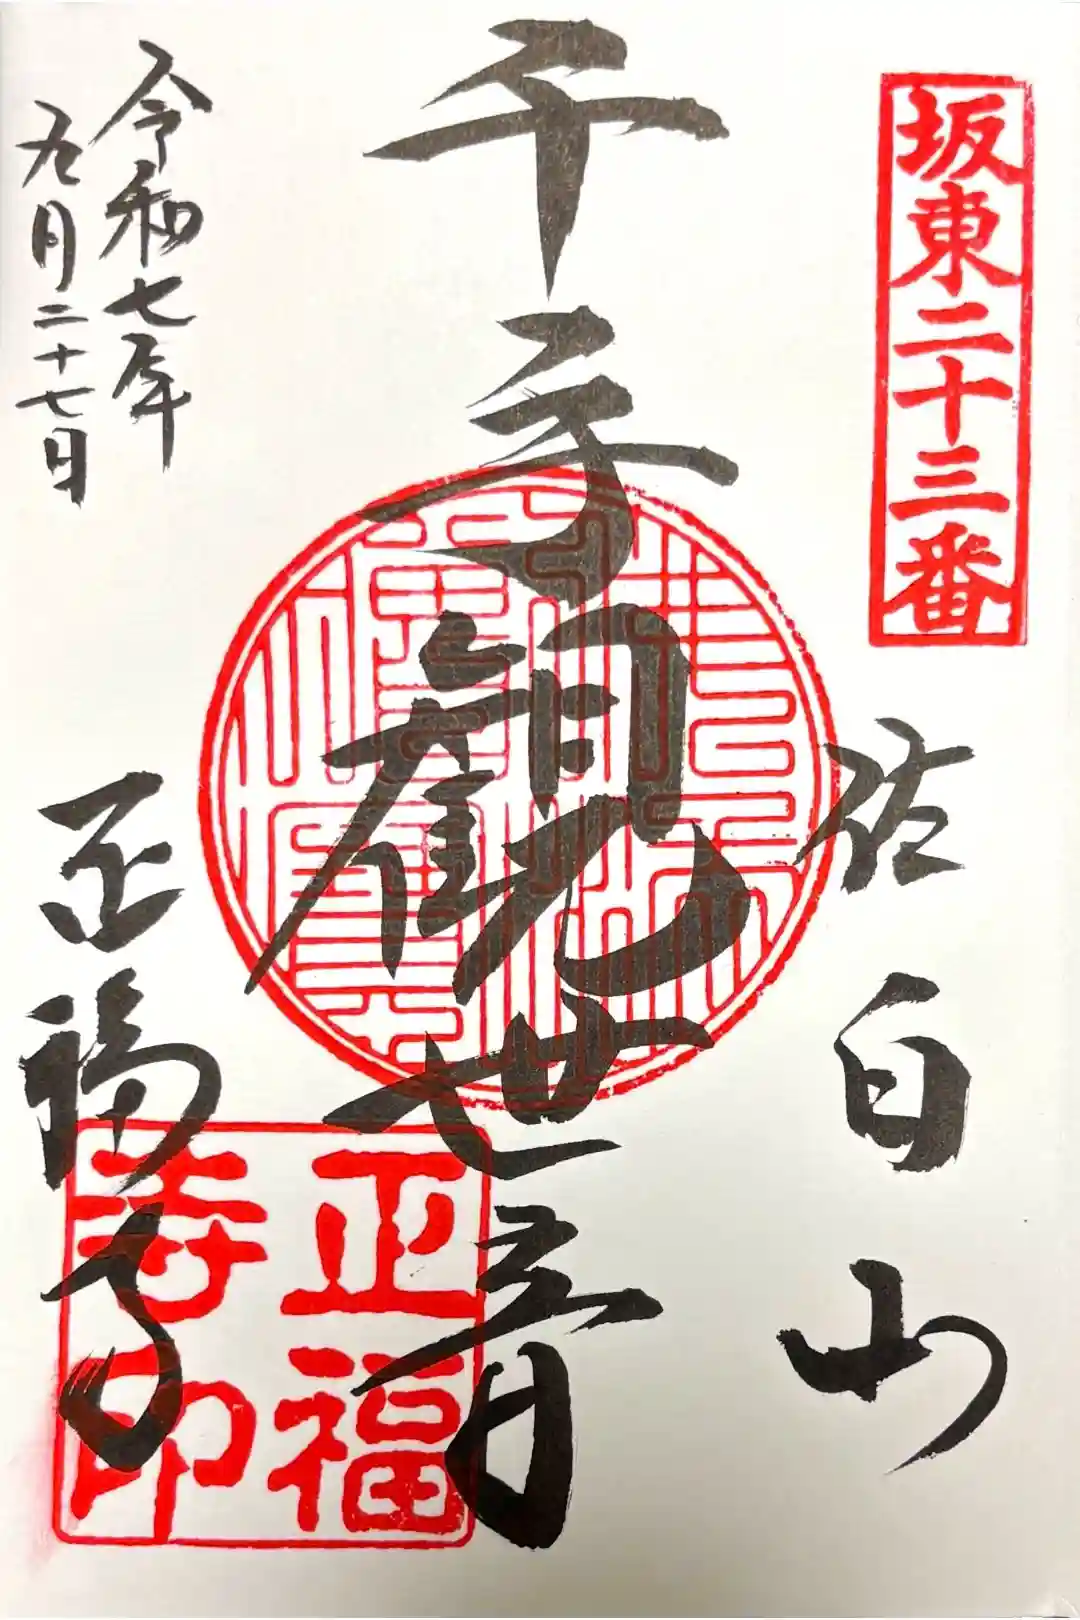 坂東二十三番
佐白山
千手観世音
令和七年
九月二十七日
正福寺
正福
寺印